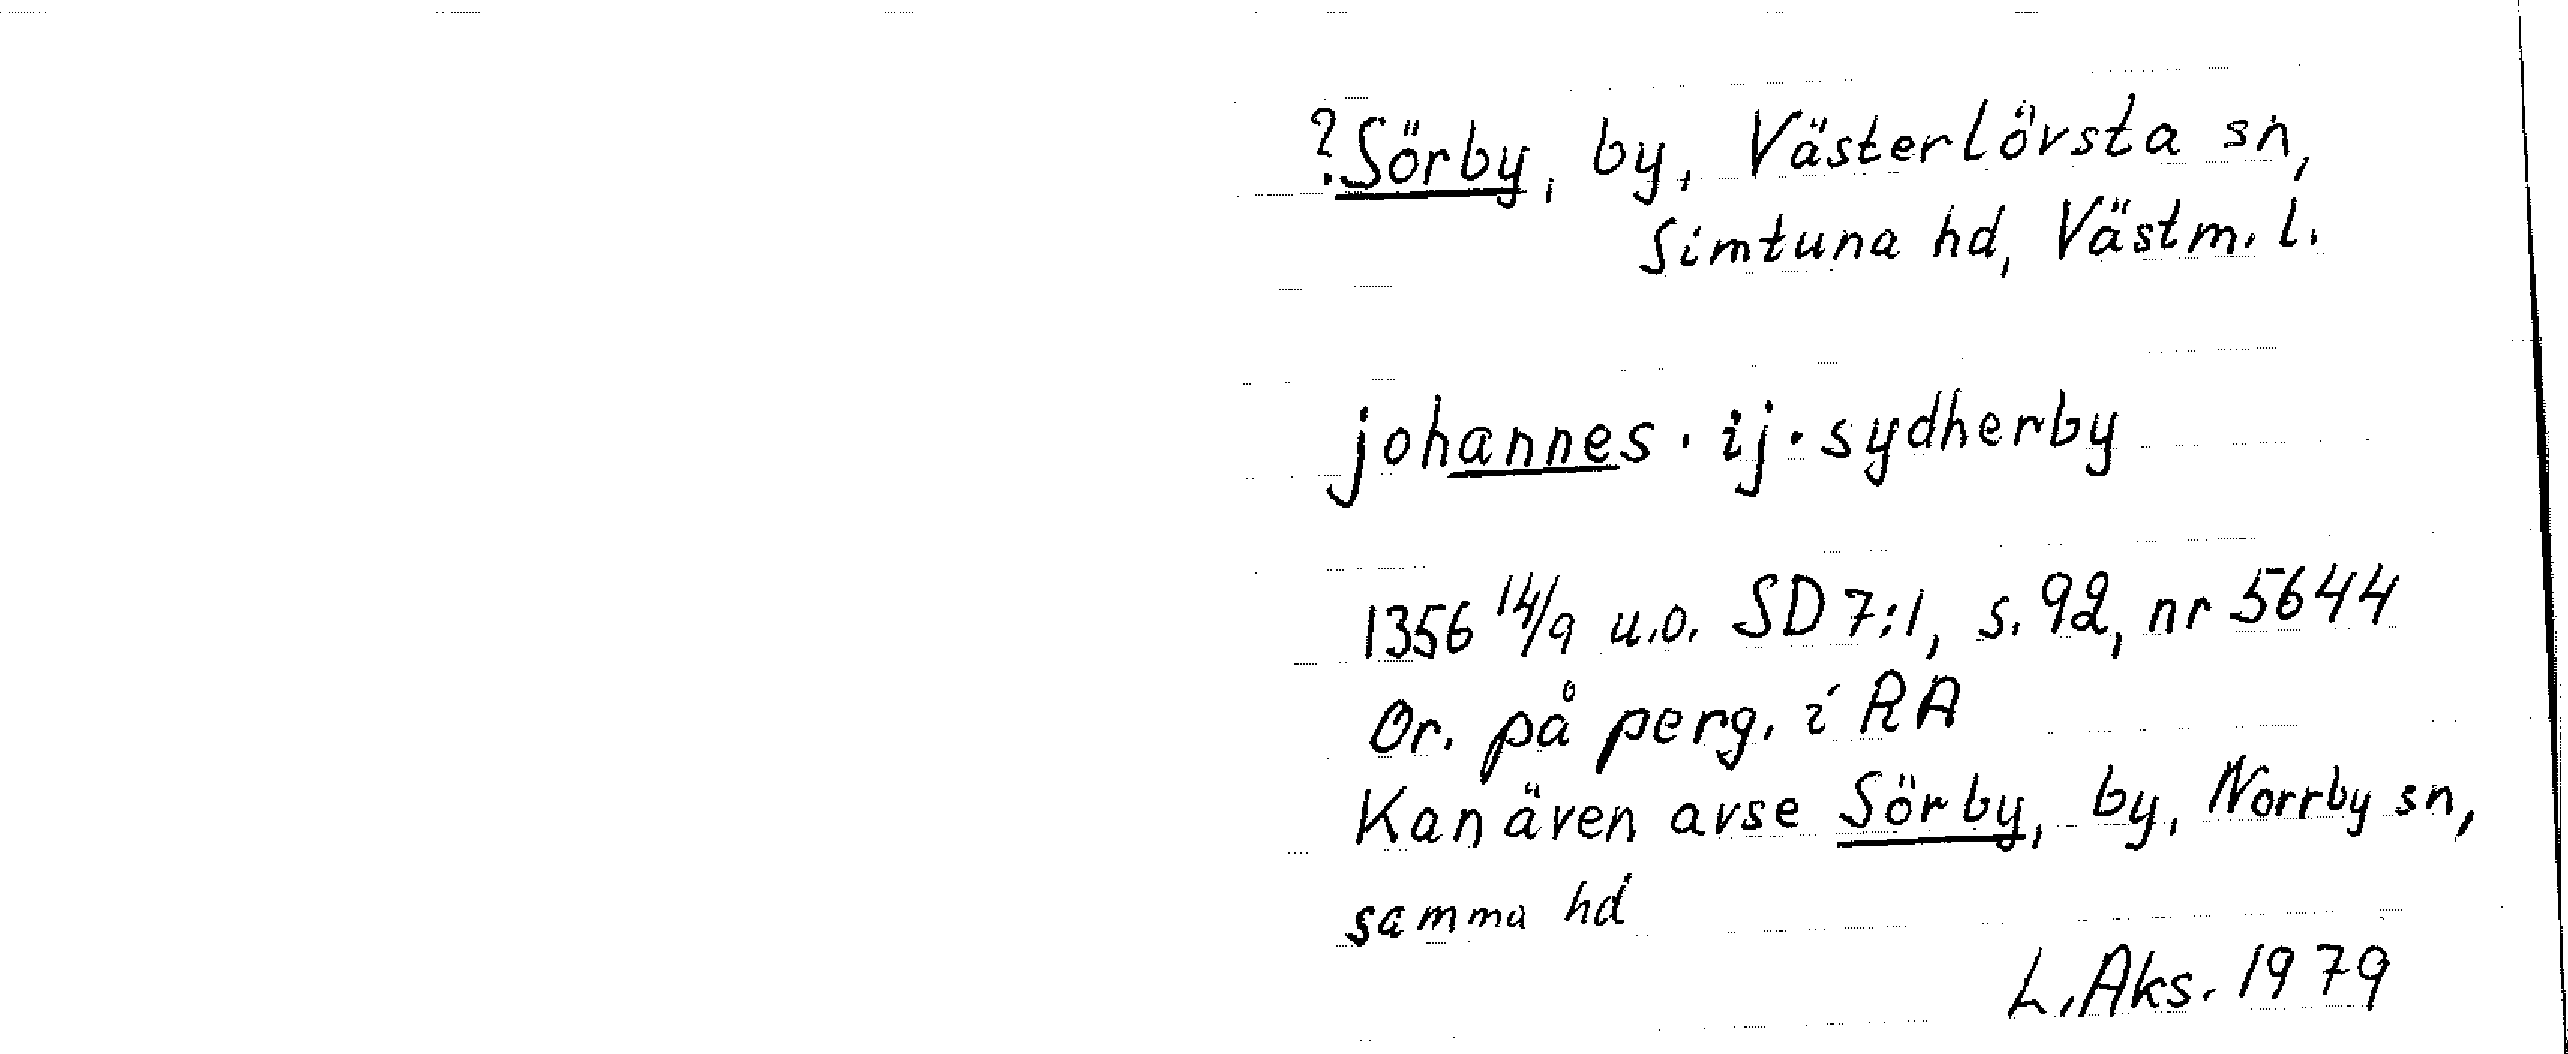 ?Sörby, by, Västerlövsta sn,
Simtuna hd, Västm. l.
johannes · ij · sydherby
1356 14/9 u.o. SD 7:1, s. 92, nr 5644
Or. på perg. i RA
Kan även avse Sörby, by, Norrby sn,
samma hd
L. Aks. 1979